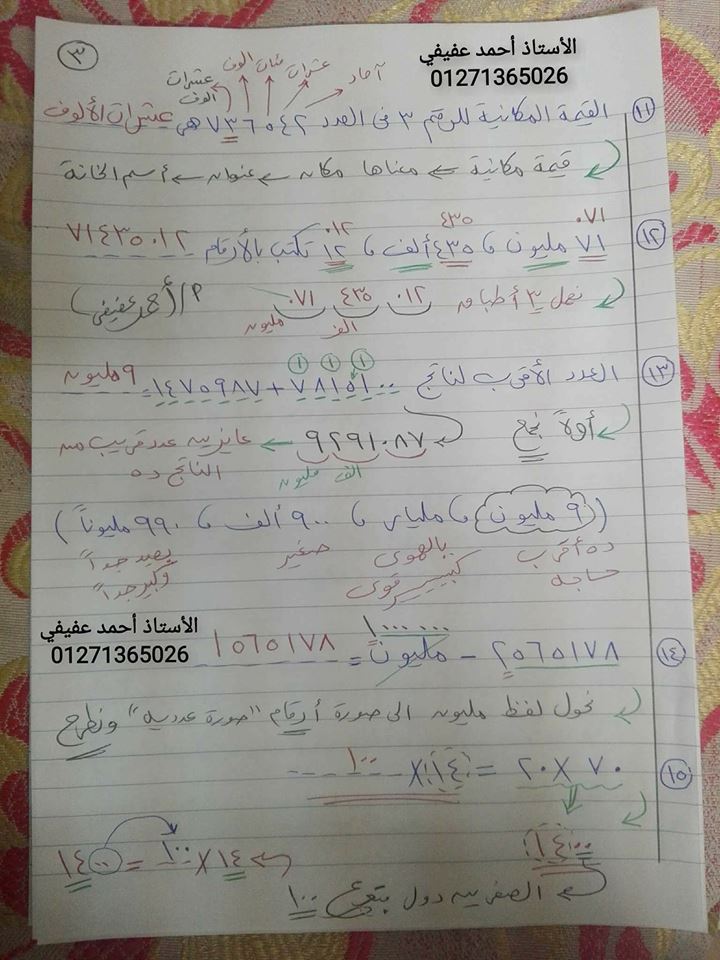 ٣
الأستاذ أحمد عفيفي
01271365026
آحاد عشرات مئات ألوف عشرات ألوف
١١ القيمة المكانية للرقم ٣ فى العدد ٧٣٦٥٤٢ هي عشرات الألوف
قيمة مكانية ← معناها مكان ← عنوان ← أسم الخانة
٠٧١ ٤٣٥ ٠١٢
١٢ ٧١ مليون ، ٤٣٥ ألف ، ١٢ تكتب بالأرقام ٧١٤٣٥٠١٢
نعمل ٣ أطباق ٠٧١ ٤٣٥ ٠١٢ م/أحمد عفيفي
مليون الف
١ ١ ١
١٣ العدد الأقرب لناتج ٧٨١٥١٠٠ + ١٤٧٥٩٨٧ = ٩ مليون
أولاً نجمع ٩٢٩١٠٨٧ ← عايزين عدد قريب من
الف مليون الناتج ده
(٩ مليون ، مليار ، ٩٠٠ ألف ، ٩٩٠ مليوناً)
ده أقرب بالهوى صغير بعيد جداً
حاجه كبيـــر قوى وكبير جداً
الأستاذ أحمد عفيفي
01271365026
١٠٠٠٠٠٠
١٤ ٢٥٦٥١٧٨ - مليون = ١٥٦٥١٧٨
نحول لفظ مليون الى صورة أرقام "صورة عدديه" ونطرح
١٥ ٧٠ × ٢٠ = ١٤ × ١٠٠
١٤٠٠
١٤ × ١٠٠ = ١٤٠٠
الصفرين دول بتوع ١٠٠